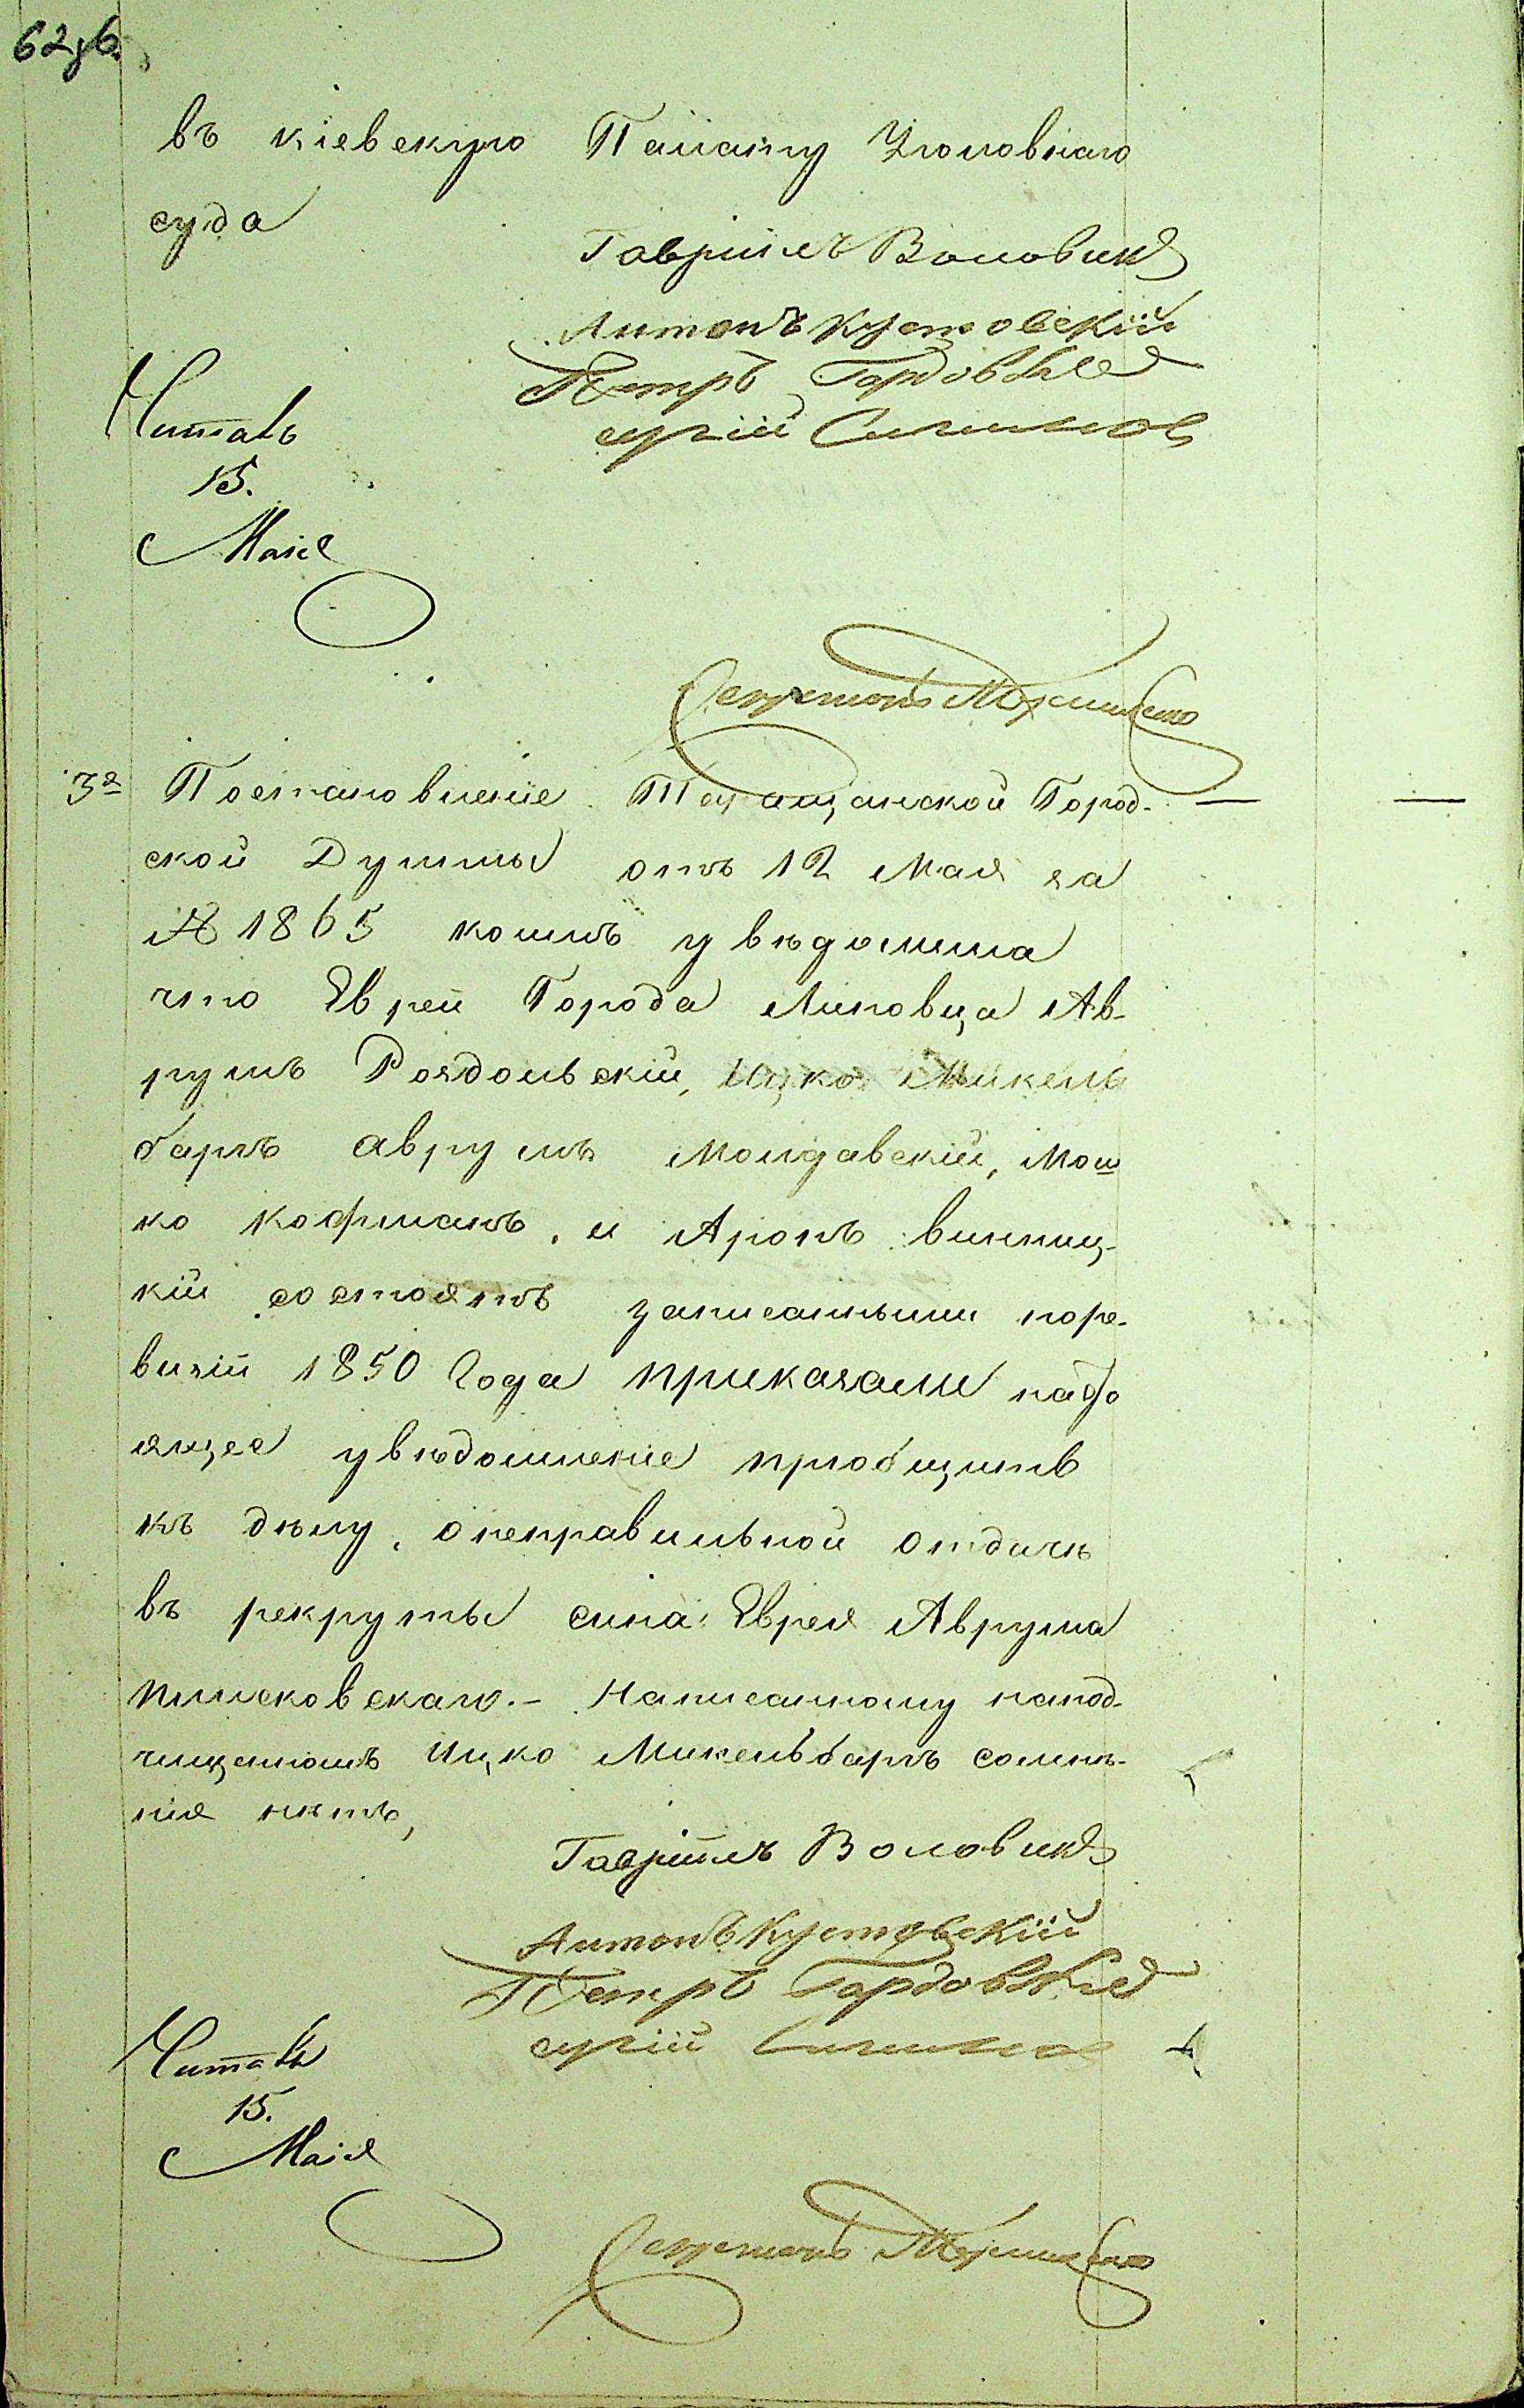 62 зб.
въ кіевскую Палату Уголовнаго
суда
Гавриилъ Воловикъ
Антонъ Кустовскій
Петръ Гордовскій
сергій
Читалъ
15.
Маія
Секретарь
3е Постановленіе Таращанской Город-
ской Думмы отъ 12 Мая за
№ 1865 коимъ увѣдомила
что Еврей Города Липовца Ав-
румъ Роздольскій, Ицко Микель
баръ аврумъ Молдавскій, Мош
ко Кофманъ, и Аронъ винниц-
кій состоятъ записанными поре-
визіи 1850 Года приказали насто
ящее увѣдомленіе пріобщить
къ дѣлу, онеправильной отдачѣ
въ рекруты сина Еврея Аврума
Писковскаго.- Написанному напод-
чищенномъ Ицко Микельбаръ сомнѣ-
нія нѣтъ,
Гавриилъ Воловикъ
Антонъ Кустовскій
Петръ Гордовскій
сергій
Читалъ
15.
Маія
Секретарь